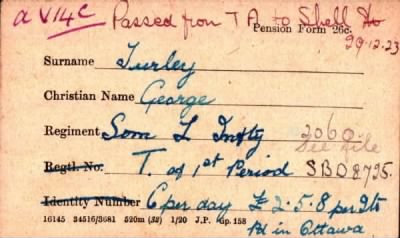 a V14C Passed from T A to Shell Ho
Pension Form 26c.
29.12.23
Surname Turley
Christian Name George
Regiment Som L Infty 2060
See file
Regtl. No. T. of 1st Period SBD 8795.
Identity Number 6 per day £2.5.8 per Qto
16145 34516/3681 520m (32) 1/20 J.P. Gp.158 Pd in Ottawa